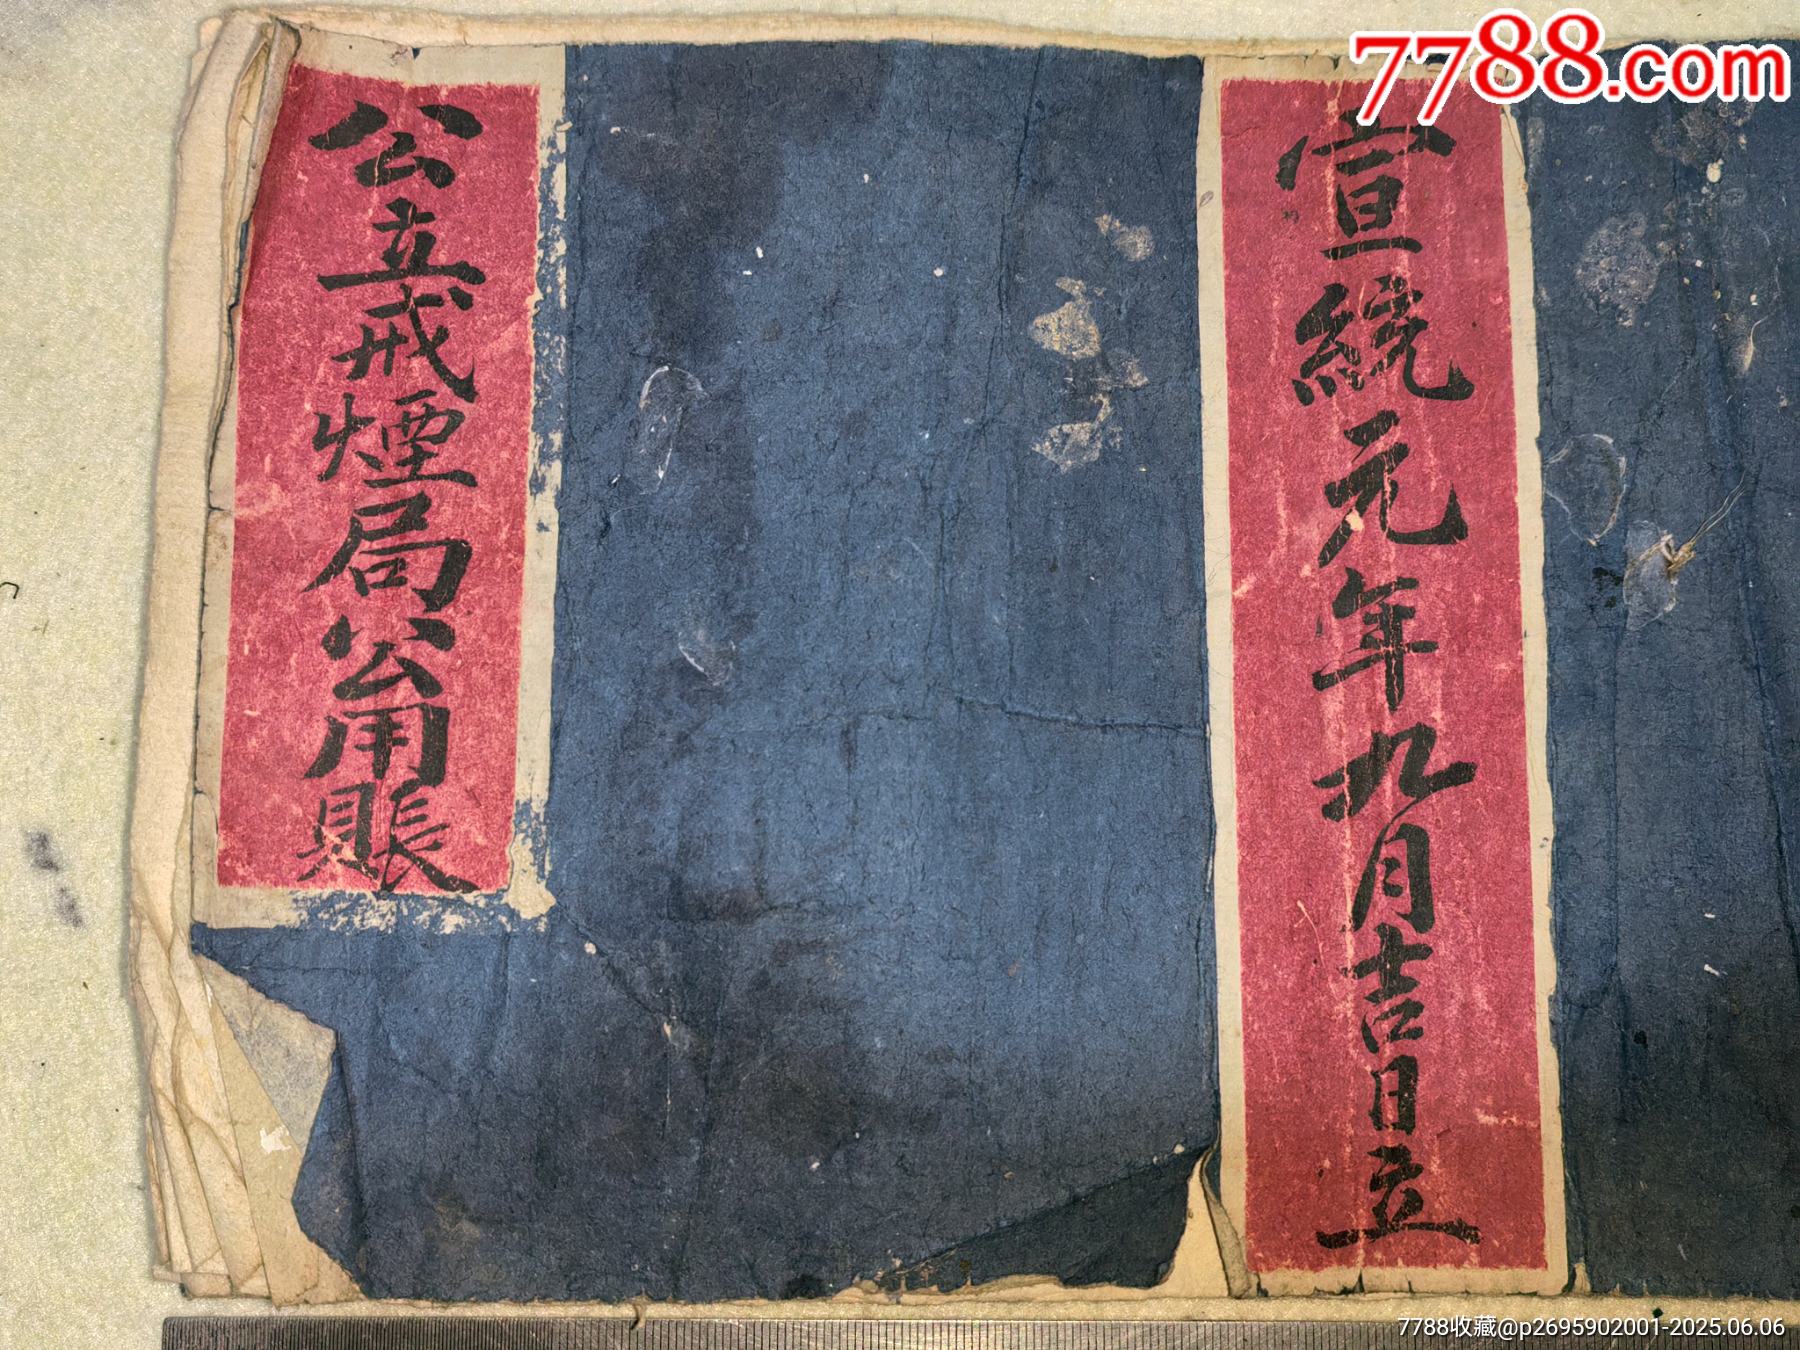 宣統元年九月吉日立
公立戒煙局公用賬
7788.com
7788收藏@p2695902001-2025.06.06